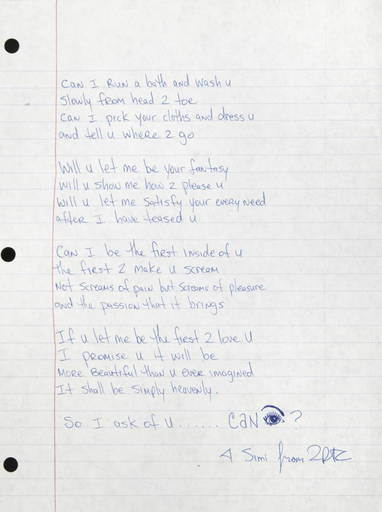 Can I Run a bath and wash u
Slowly from head 2 toe
Can I pick your cloths and dress u
and tell u where 2 go
Will u let me be your fantasy
will u show me how 2 please u
Will u let me Satisfy your every need
after I have teased u
Can I be the first inside of u
the first 2 make u scream
Not Screams of pain but Screams of pleasure
and the passion that it brings
If u let me be the first 2 love u
I promise u it will be
More Beautiful than u ever imagined
It shall be Simply heavenly.
So I ask of u...... CAN ?
Simi from